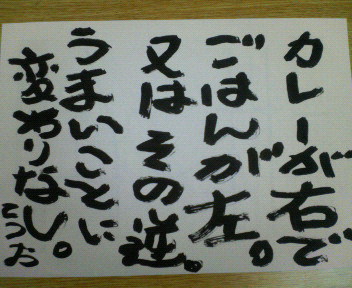 カレーが右で
ごはんが左。
又はその逆。
うまいことに
変わりなし。
とつお